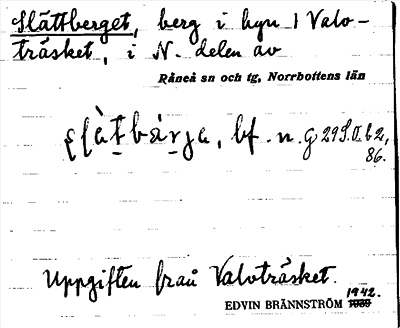 Slättberget, berg i byn 1 Valv-
träsket, i N. delen av
Råneå sn och tg, Norrbottens län
ʃlàtbárja, bf. n. g 29 S. II b 2,
86.
Uppgiften från Valvträsket.
1942.
EDVIN BRÄNNSTRÖM 1939